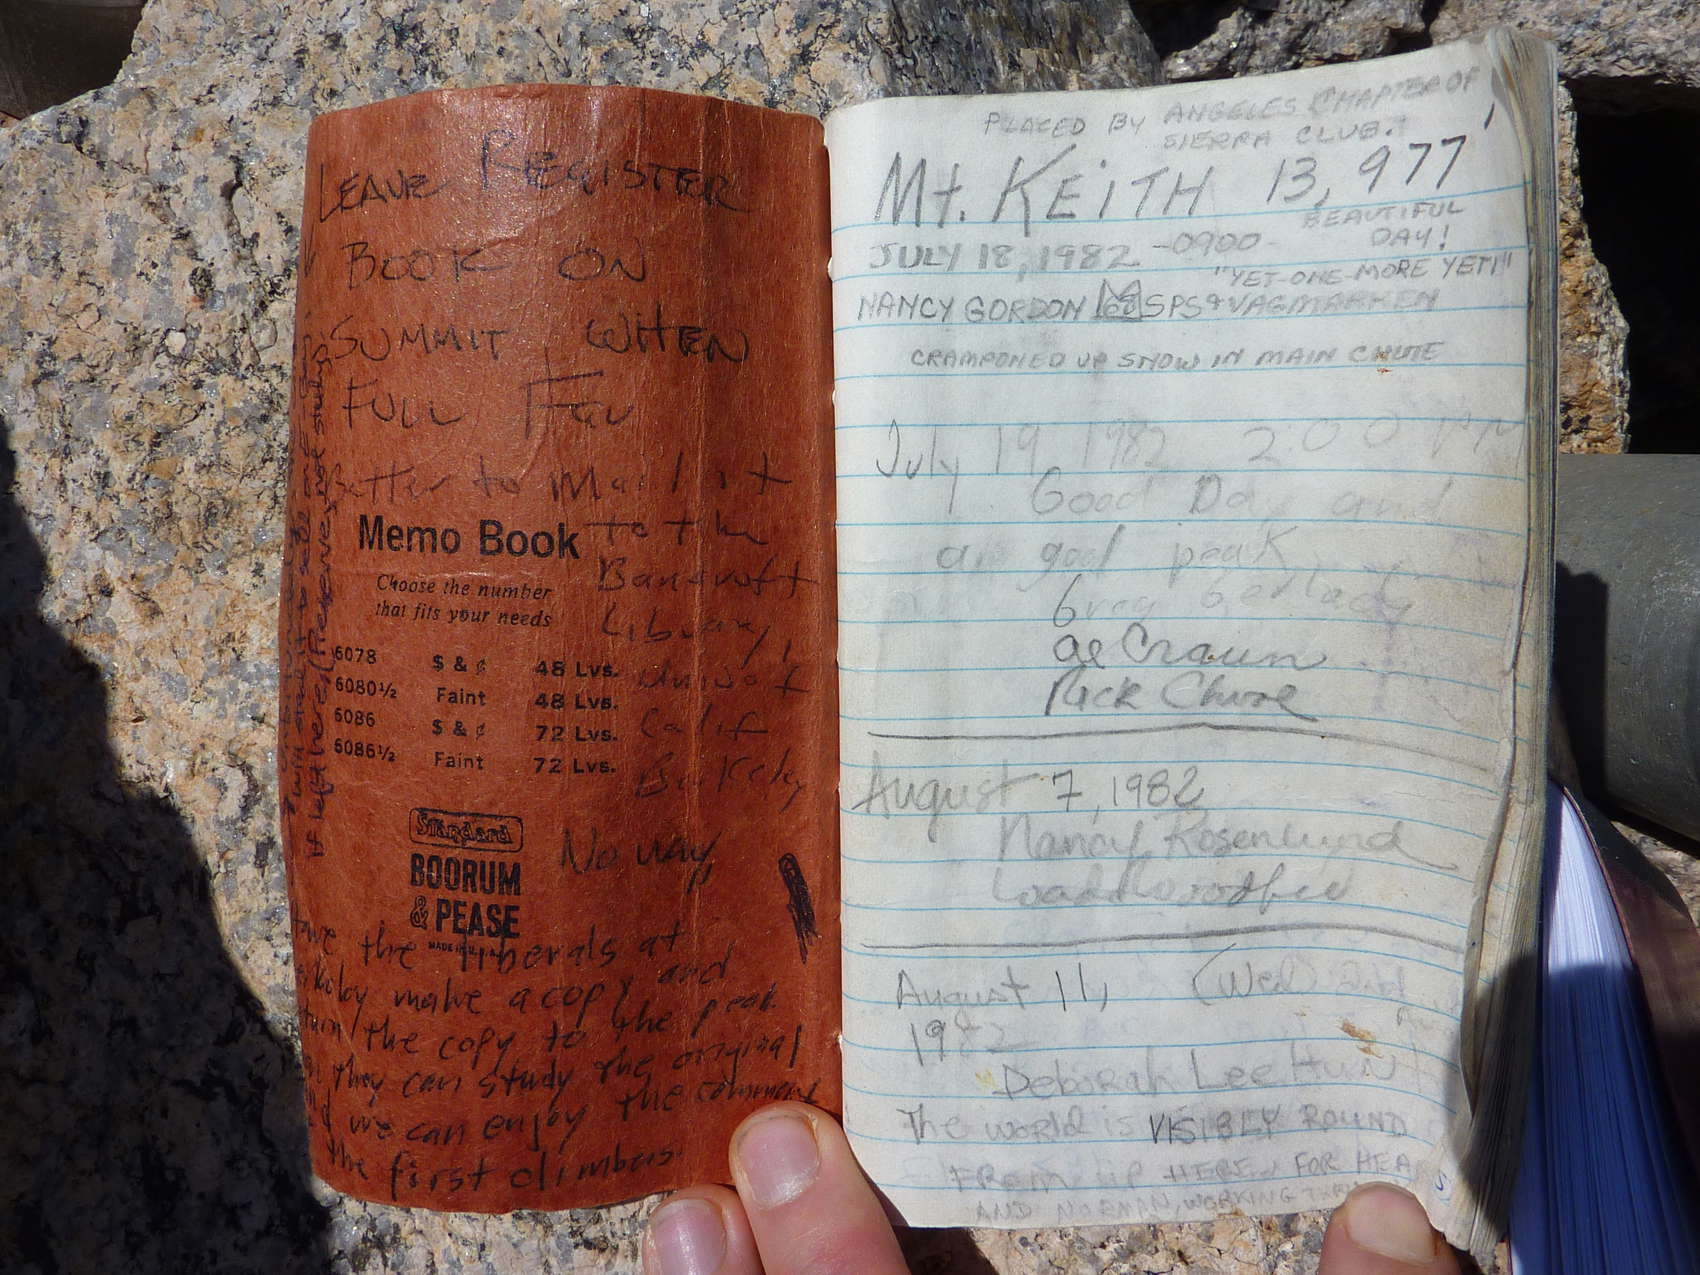 LEAVE REGISTER
BOOK ON
SUMMIT WHEN
FULL
Better to Mail it
to the
Bancroft
Library,
Univ of
Calif
Berkeley
No way
Memo Book
Choose the number
that fits your needs
6078 $ & ¢ 48 Lvs.
6080½ Faint 48 Lvs.
6086 $ & ¢ 72 Lvs.
6086½ Faint 72 Lvs.
Standard
BOORUM
& PEASE
MADE IN
the liberals at
make a copy and
the copy to the peak
they can study the original
we can enjoy the comments
the first climbers.
If left here, preserve, not study
PLACED BY ANGELES CHAPTER OF
SIERRA CLUB.
Mt. KEITH 13,977'
JULY 18, 1982 -0900- BEAUTIFUL
DAY!
"YET-ONE-MORE YETI"
NANCY GORDON SPS & VAGMARKEN
CRAMPONED UP SNOW IN MAIN CHUTE
July 19 1982 2:00 PM
Good Day and
a good peak
Greg
Craun
Rick
August 7, 1982
Nancy Rosenlund
August 11, (Wed)
1982
Deborah Lee
The world is VISIBLY ROUND
FROM UP HERE. FOR
AND NORMAN, WORKING